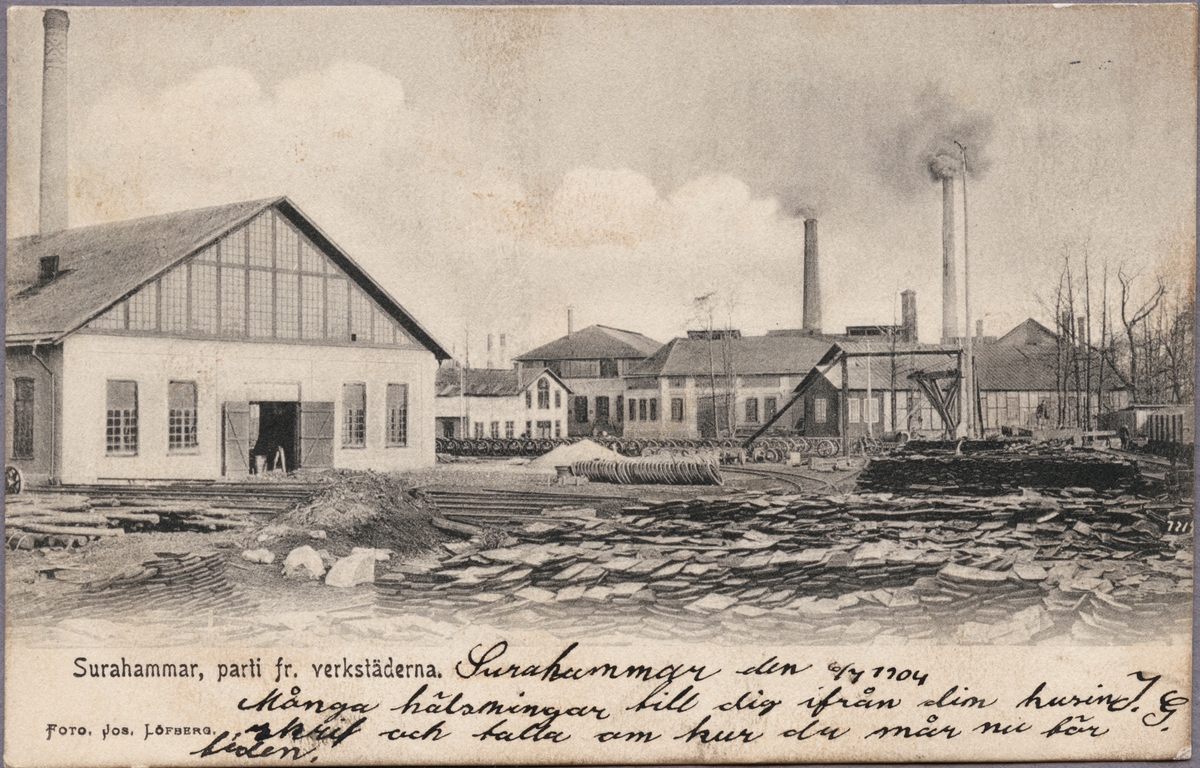 721
Surahammar, parti fr. verkstäderna. Surahammar den 6/7 1904
Många hälsningar till dig ifrån din kusin I. G.
FOTO. JOS. LÖFBERG. skrif och talla om hur du mår nu för
tiden.